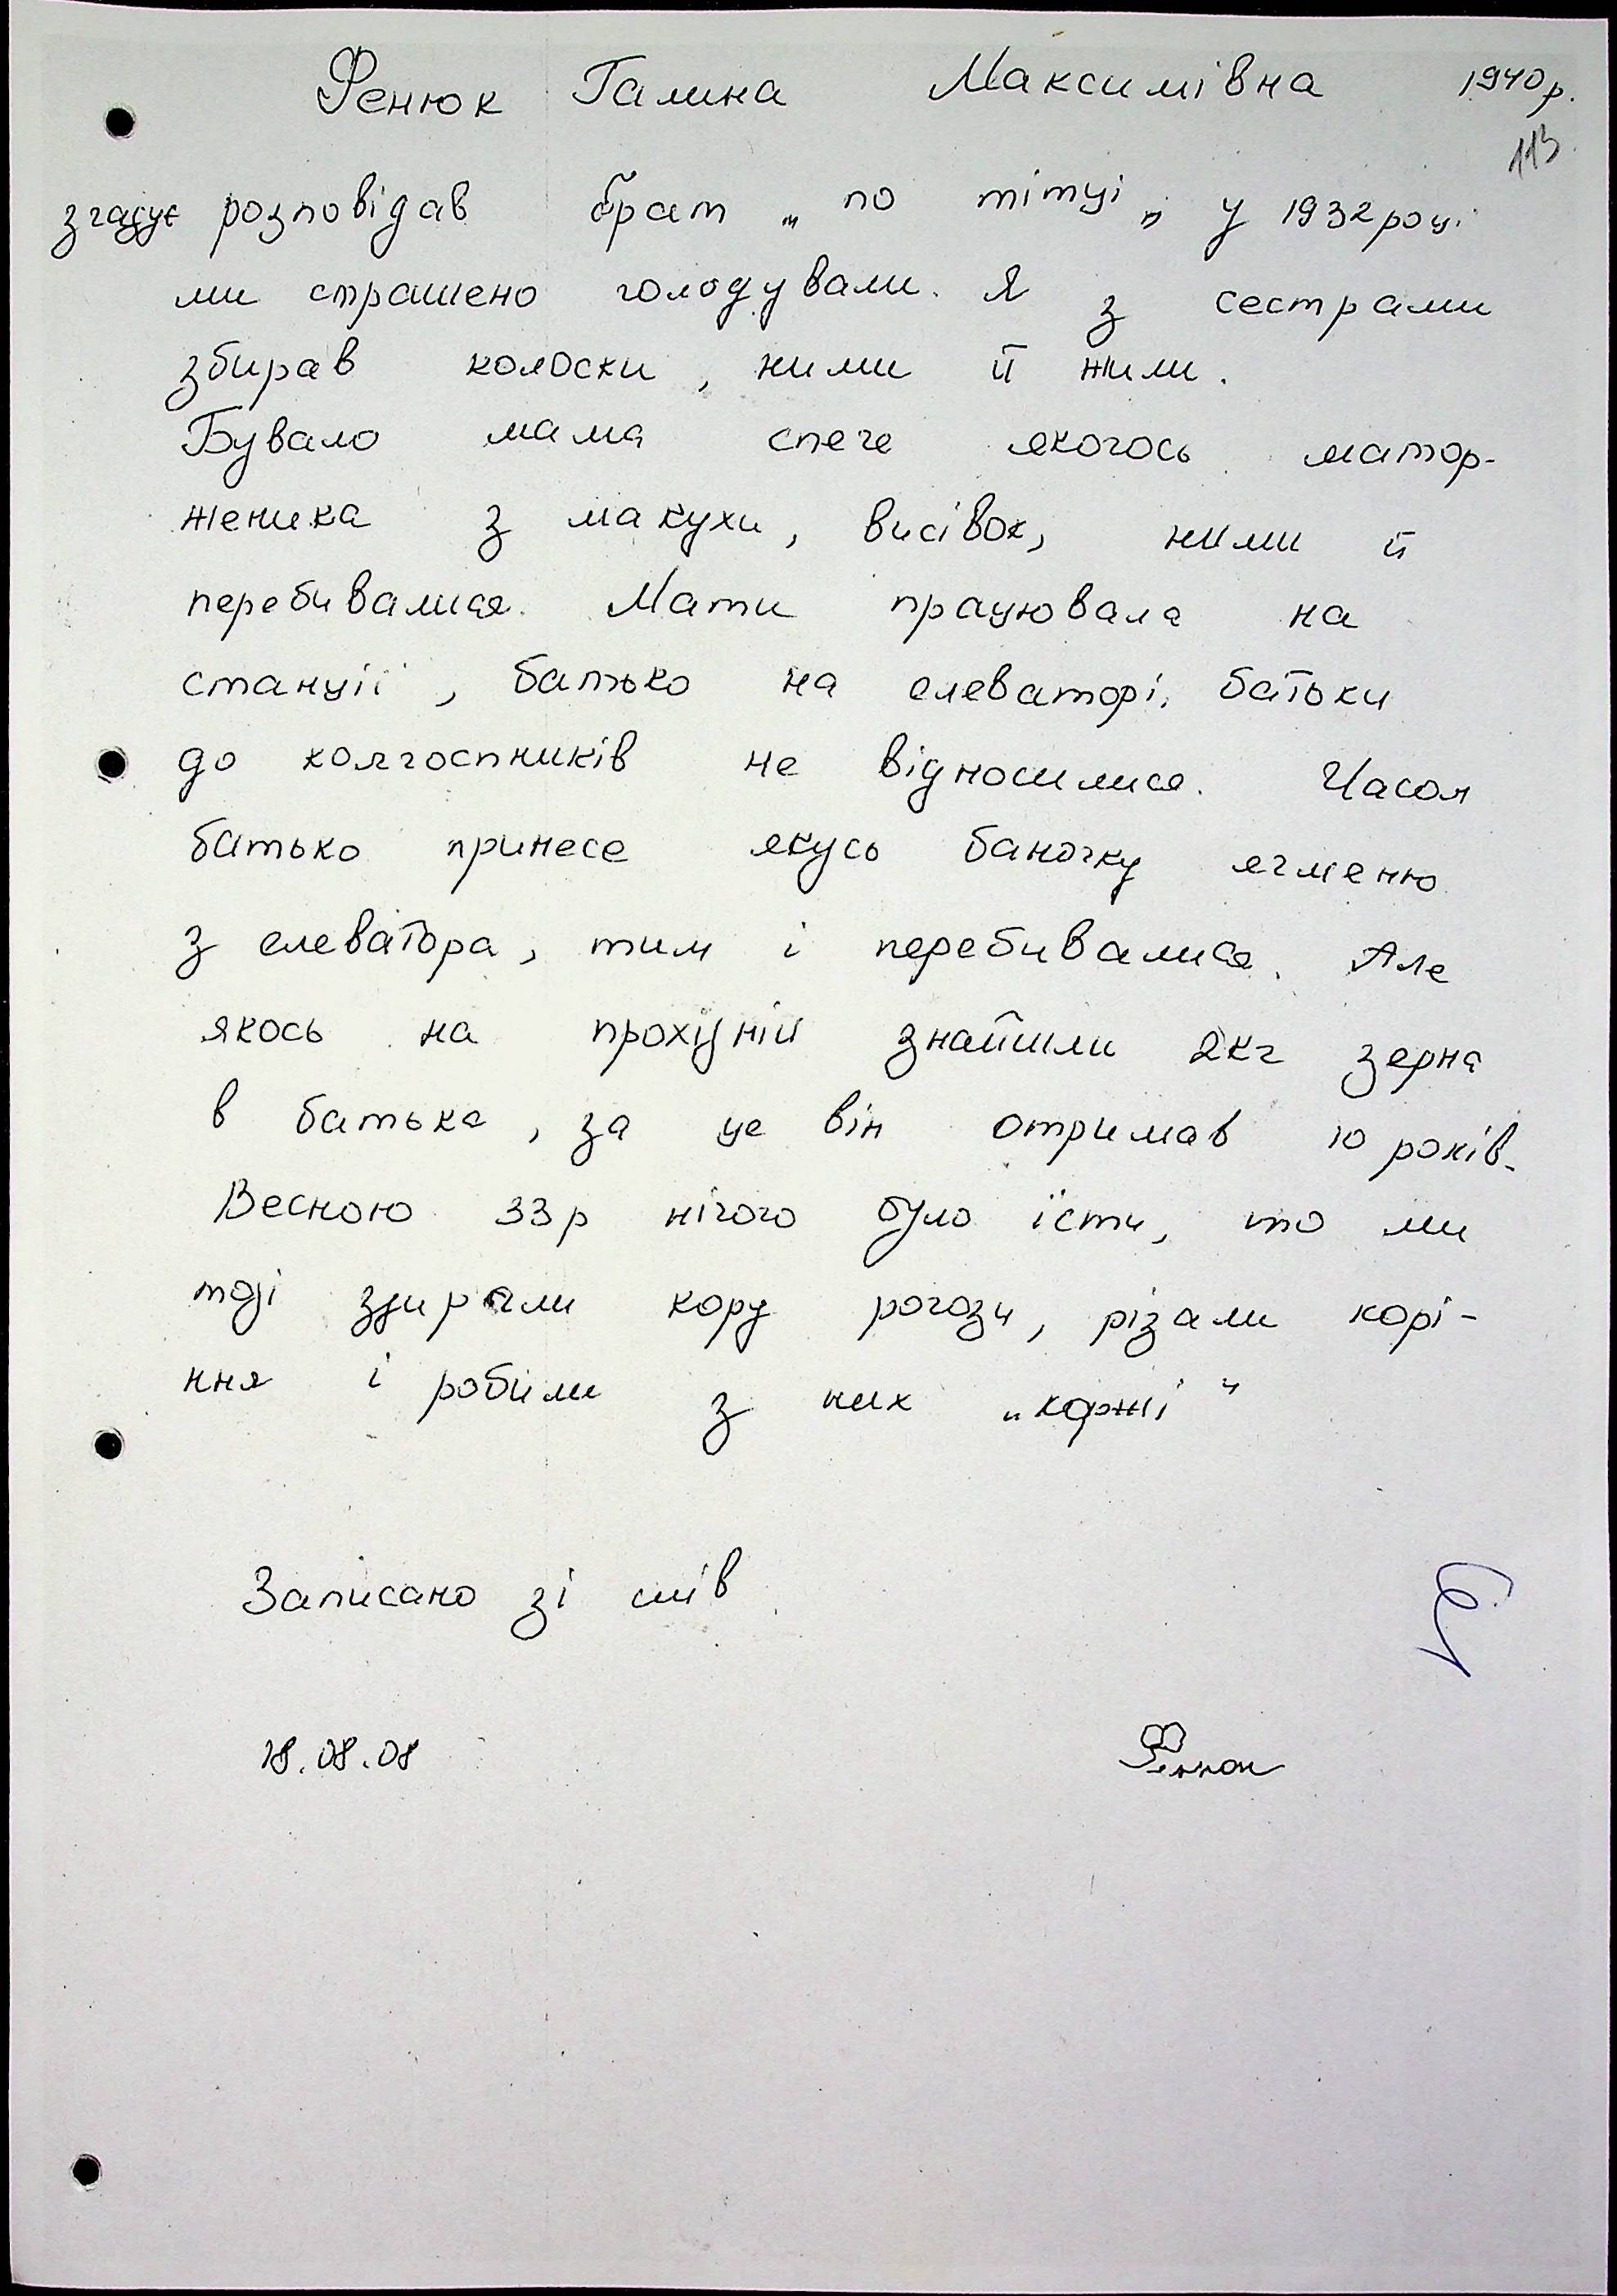 Фенюк Галина Максимівна 1940р.
113
згадує розповідав брат „ по тітці „ у 1932році
ми страшено голодували. Я з сестрами
збирав колоски, ними й жили.
Бувало мама спече якогось матор-
женика з макухи, висівок, ними й
перебивалися. Мати працювала на
станції, батько на елеваторі, батьки
до колгоспників не відносилися. Часом
батько принесе якусь баночку ячменю
з елеватора, тим і перебивалися. Але
якось на прохідній знайшли 2кг зерна
в батька, за це він отримав 10 років.
Весною 33р нічого було їсти, то ми
тоді здирали кору рогози, різали корі-
ння і робили з них „коржі“
Записано зі слів
18.08.08 Фенюк